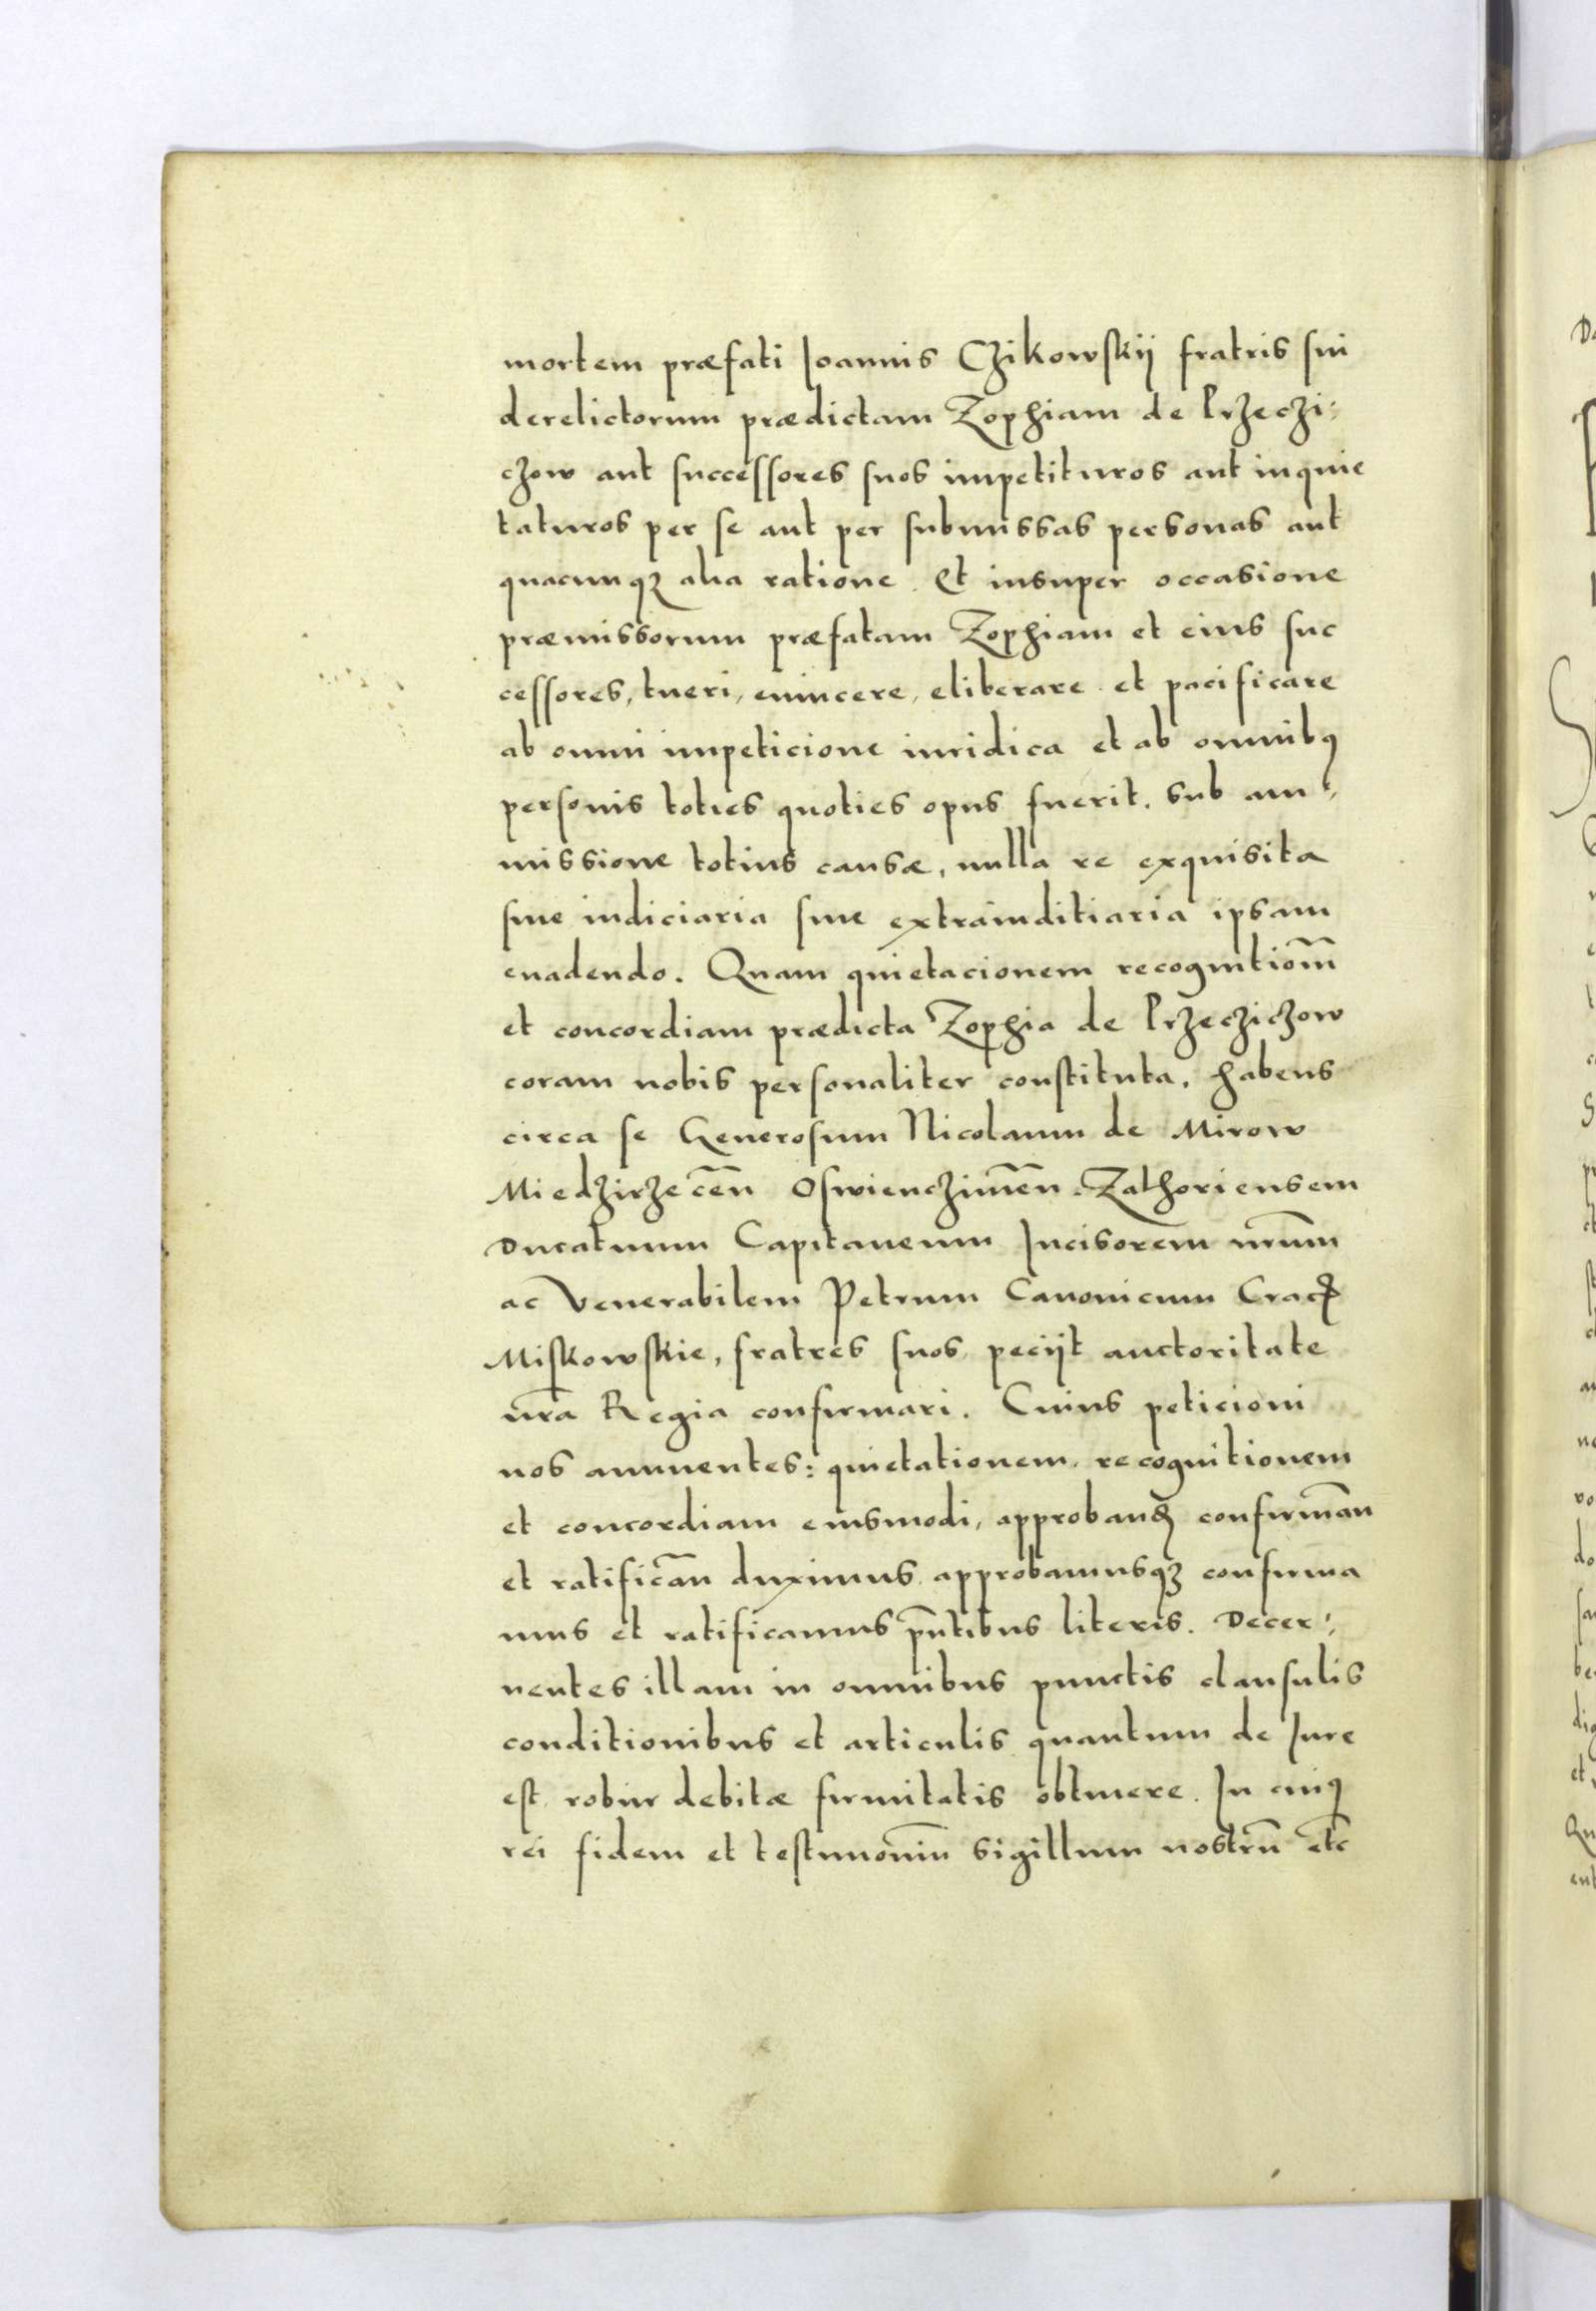 mortem præfati Ioannis Czikowskij fratris sui
derelictorum prædictam Zophiam de Przeczi:
czow aut successores suos impetituros aut inquie
taturos per se aut per submissas personas aut
quacunqȝ alia ratione. Et insuper occasione
præmissorum præfatam Zophiam et eius suc
cessores, tueri, euincere, eliberare et pacificare
ab omni impeticione iuridica et ab omnibꝯ
personis toties quoties opus fuerit. sub am:
missione totius causæ, nulla re exquisita
siue iudiciaria siue extraiuditiaria ipsam
euadendo. Quam quietacionem recognitiom̄
et concordiam prædicta Zophia de Przecziczow
coram nobis personaliter constituta, habens
circa se Generosum Nicolaum de Mirow
Miedzirzecēn Oswienczimēn Zathoriensem
Ducatuum Capitaneum Incisorem nrūm
ac Venerabilem Petrum Canonicum Cracꝭ
Miskowskie, fratres suos peciit auctoritate
nrā Regia confirmari. Cuius peticioni
nos annuentes: quietationem, recognitionem
et concordiam eiusmodi, approbanꝭ confirmān
et ratificān duximus approbamusqȝ confirma
mus et ratificamus pn̄tibus literis. Decer:
nentes illam in omnibus punctis clausulis
conditionibus et articulis quantum de Iure
est, robur debitæ firmitatis obtinere. In cuiꝯ
rei fidem et testimoniū sigillum nostrū etc̄